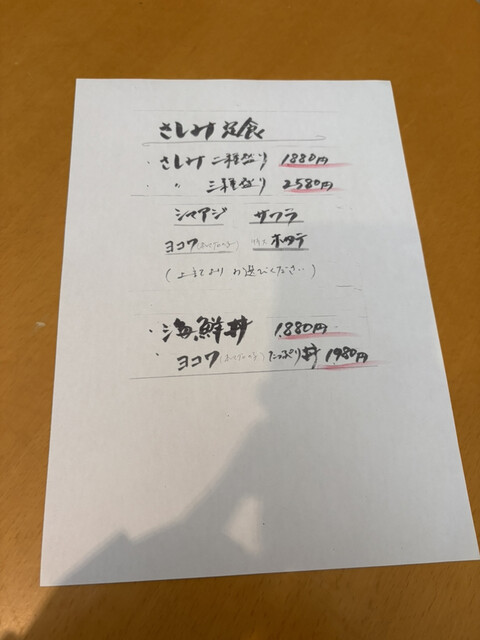 さしみ定食
・さしみ 二種盛り 1880円
・ 〃 三種盛り 2580円
シマアジ サワラ
ヨコワ ホタテ
(上記より お選びください)
・海鮮丼 1880円
・ヨコワ たっぷり丼 1980円